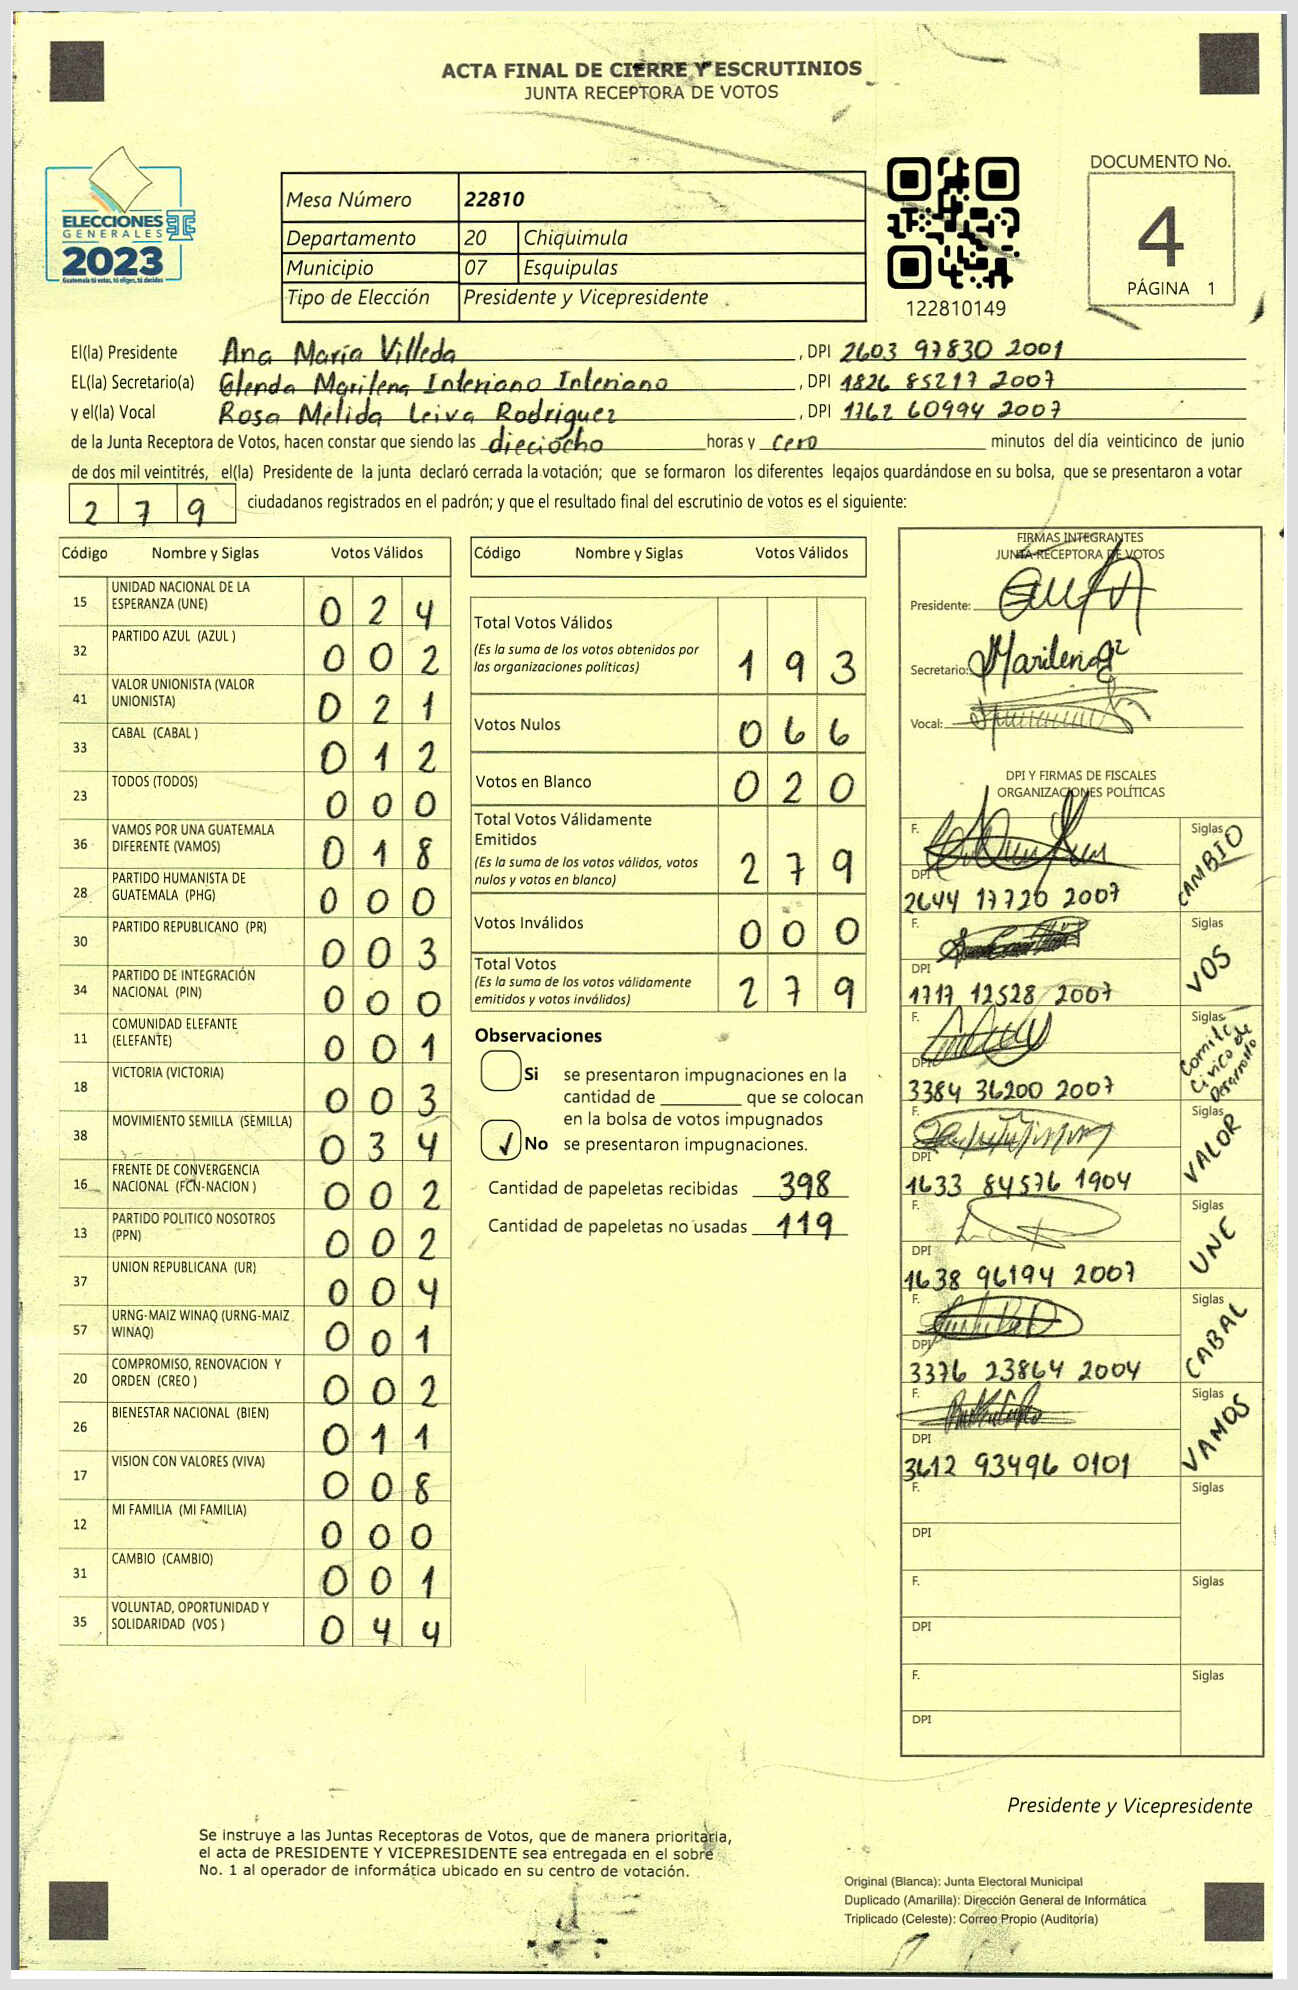 ACTA FINAL DE CIERRE Y ESCRUTINIOS
JUNTA RECEPTORA DE VOTOS
ELECCIONES
GENERALES
2023
Guatemala tú votas, tú eliges, tú decides
Mesa Número 22810
Departamento 20 Chiquimula
Municipio 07 Esquipulas
Tipo de Elección Presidente y Vicepresidente
122810149
DOCUMENTO No.
4
PÁGINA 1
El(la) Presidente Ana María Villeda, DPI 2603 97830 2001
EL(la) Secretario(a) Glenda Marilena Interiano Interiano, DPI 1826 85217 2007
y el(la) Vocal Rosa Melida Leiva Rodriguez, DPI 1762 60994 2007
de la Junta Receptora de Votos, hacen constar que siendo las dieciocho horas y cero minutos del día veinticinco de junio
de dos mil veintitrés, el(la) Presidente de la junta declaró cerrada la votación; que se formaron los diferentes legajos guardándose en su bolsa, que se presentaron a votar
279 ciudadanos registrados en el padrón; y que el resultado final del escrutinio de votos es el siguiente:
Código Nombre y Siglas Votos Válidos
15 UNIDAD NACIONAL DE LA ESPERANZA (UNE) 024
32 PARTIDO AZUL (AZUL ) 002
41 VALOR UNIONISTA (VALOR UNIONISTA) 021
33 CABAL (CABAL ) 012
23 TODOS (TODOS) 000
36 VAMOS POR UNA GUATEMALA DIFERENTE (VAMOS) 018
28 PARTIDO HUMANISTA DE GUATEMALA (PHG) 000
30 PARTIDO REPUBLICANO (PR) 003
34 PARTIDO DE INTEGRACIÓN NACIONAL (PIN) 000
11 COMUNIDAD ELEFANTE (ELEFANTE) 001
18 VICTORIA (VICTORIA) 003
38 MOVIMIENTO SEMILLA (SEMILLA) 034
16 FRENTE DE CONVERGENCIA NACIONAL (FCN-NACION ) 002
13 PARTIDO POLITICO NOSOTROS (PPN) 002
37 UNION REPUBLICANA (UR) 004
57 URNG-MAIZ WINAQ (URNG-MAIZ WINAQ) 001
20 COMPROMISO, RENOVACION Y ORDEN (CREO ) 002
26 BIENESTAR NACIONAL (BIEN) 011
17 VISION CON VALORES (VIVA) 008
12 MI FAMILIA (MI FAMILIA) 000
31 CAMBIO (CAMBIO) 001
35 VOLUNTAD, OPORTUNIDAD Y SOLIDARIDAD (VOS ) 044
Código Nombre y Siglas Votos Válidos
Total Votos Válidos
(Es la suma de los votos obtenidos por
las organizaciones políticas) 193
Votos Nulos 066
Votos en Blanco 020
Total Votos Válidamente
Emitidos
(Es la suma de los votos válidos, votos
nulos y votos en blanco) 279
Votos Inválidos 000
Total Votos
(Es la suma de los votos válidamente
emitidos y votos inválidos) 279
Observaciones
Si se presentaron impugnaciones en la
cantidad de ________ que se colocan
en la bolsa de votos impugnados
✓ No se presentaron impugnaciones.
Cantidad de papeletas recibidas 398
Cantidad de papeletas no usadas 119
FIRMAS INTEGRANTES
JUNTA RECEPTORA DE VOTOS
Presidente:
Secretario: Marilena
Vocal:
DPI Y FIRMAS DE FISCALES
ORGANIZACIONES POLÍTICAS
F. Siglas CAMBIO
DPI
2644 17720 2007
F. Siglas VOS
DPI
1717 12528 2007
F. Siglas Comite Civico de Desarrollo
DPI
3384 36200 2007
F. Siglas VALOR
DPI
1633 84576 1904
F. Siglas UNE
DPI
1638 96194 2007
F. Siglas CABAL
DPI
3376 23864 2004
F. Siglas VAMOS
DPI
3612 93496 0101
F. Siglas
DPI
F. Siglas
DPI
F. Siglas
DPI
Presidente y Vicepresidente
Se instruye a las Juntas Receptoras de Votos, que de manera prioritaria,
el acta de PRESIDENTE Y VICEPRESIDENTE sea entregada en el sobre
No. 1 al operador de informática ubicado en su centro de votación.
Original (Blanca): Junta Electoral Municipal
Duplicado (Amarilla): Dirección General de Informática
Triplicado (Celeste): Correo Propio (Auditoría)